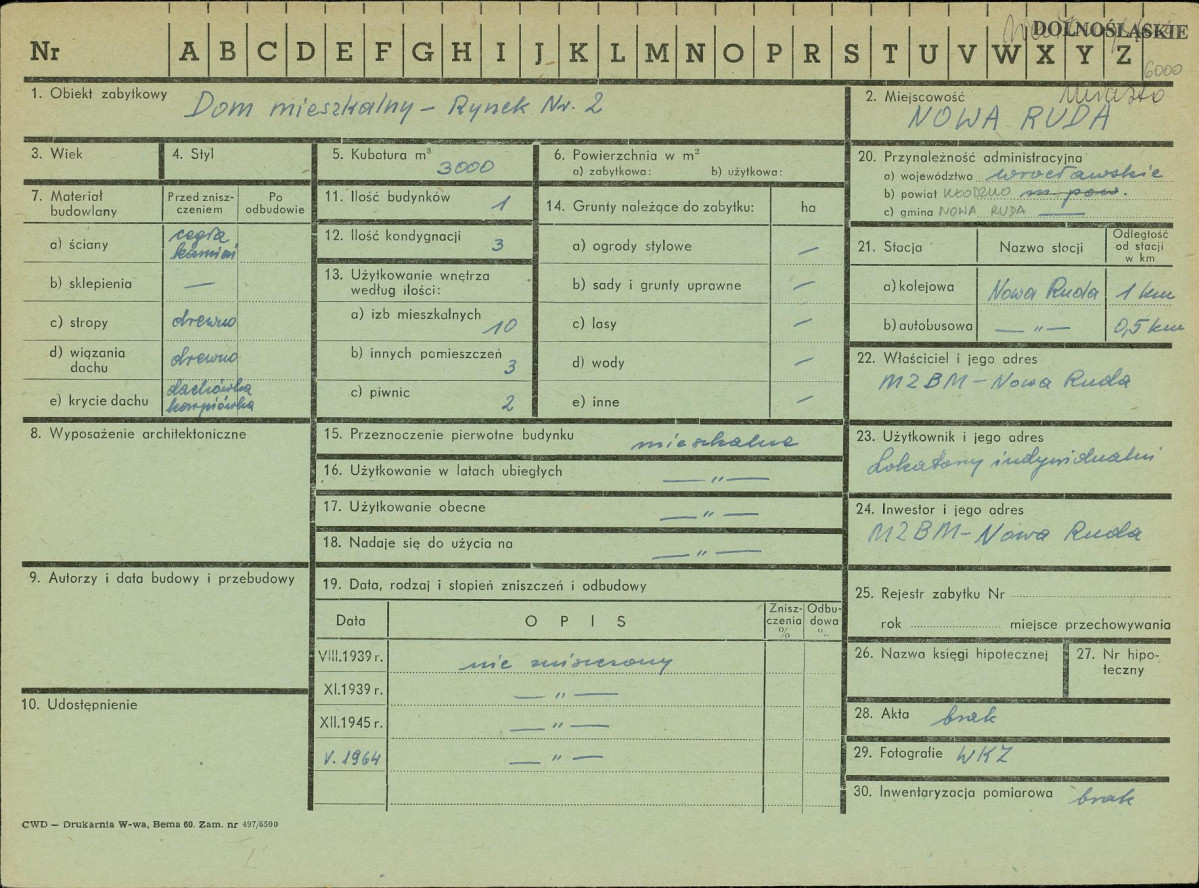 DOLNOŚLĄSKIE
Nr A B C D E F G H I J K L M N O P R S T U V W X Y Z
6000
1. Obiekt zabytkowy Dom mieszkalny – Rynek Nr. 2
2. Miejscowość miasto
NOWA RUDA
3. Wiek
4. Styl
5. Kubatura m³ 3000
6. Powierzchnia w m²
a) zabytkowa: b) użytkowa:
7. Materiał budowlany
Przed znisz-
czeniem
Po
odbudowie
a) ściany cegła
kamień
b) sklepienia —
c) stropy drewno
d) wiązania
dachu drewno
e) krycie dachu dachówka
karpiówka
8. Wyposażenie architektoniczne
9. Autorzy i data budowy i przebudowy
10. Udostępnienie
11. Ilość budynków 1
12. Ilość kondygnacji 3
13. Użytkowanie wnętrza
według ilości:
a) izb mieszkalnych 10
b) innych pomieszczeń 3
c) piwnic 2
14. Grunty należące do zabytku: ha
a) ogrody stylowe —
b) sady i grunty uprawne —
c) lasy —
d) wody —
e) inne —
15. Przeznoczenie pierwotne budynku mieszkalne
16. Użytkowanie w latach ubiegłych — " —
17. Użytkowanie obecne — " —
18. Nadaje się do użycia na — " —
19. Data, rodzaj i stopień zniszczeń i odbudowy
Data O P I S Znisz-
czenia
%
Odbu-
dowa
%
VIII.1939 r. nie zniszczony
XI.1939 r. — " —
XII.1945 r. — " —
V. 1964 — " —
20. Przynależność administracyjna
a) województwo wrocławskie
b) powiat KŁODZKO m. pow.
c) gmina NOWA RUDA —
21. Stacja Nazwa stocji Odległość
od stacji
w km
a) kolejowa Nowa Ruda 1 km
b) autobusowa — " — 0,5 km
22. Właściciel i jego adres
MZBM – Nowa Ruda
23. Użytkownik i jego adres
Lokatorzy indywidualni
24. Inwestor i jego adres
MZBM – Nowa Ruda
25. Rejestr zabytku Nr
rok miejsce przechowywania
26. Nazwa księgi hipotecznej
27. Nr hipo-
teczny
28. Akta brak
29. Fotografie WKZ
30. Inwentaryzacja pomiarowa brak
CWD — Drukarnia W-wa, Bema 60. Zam. nr 497/6500